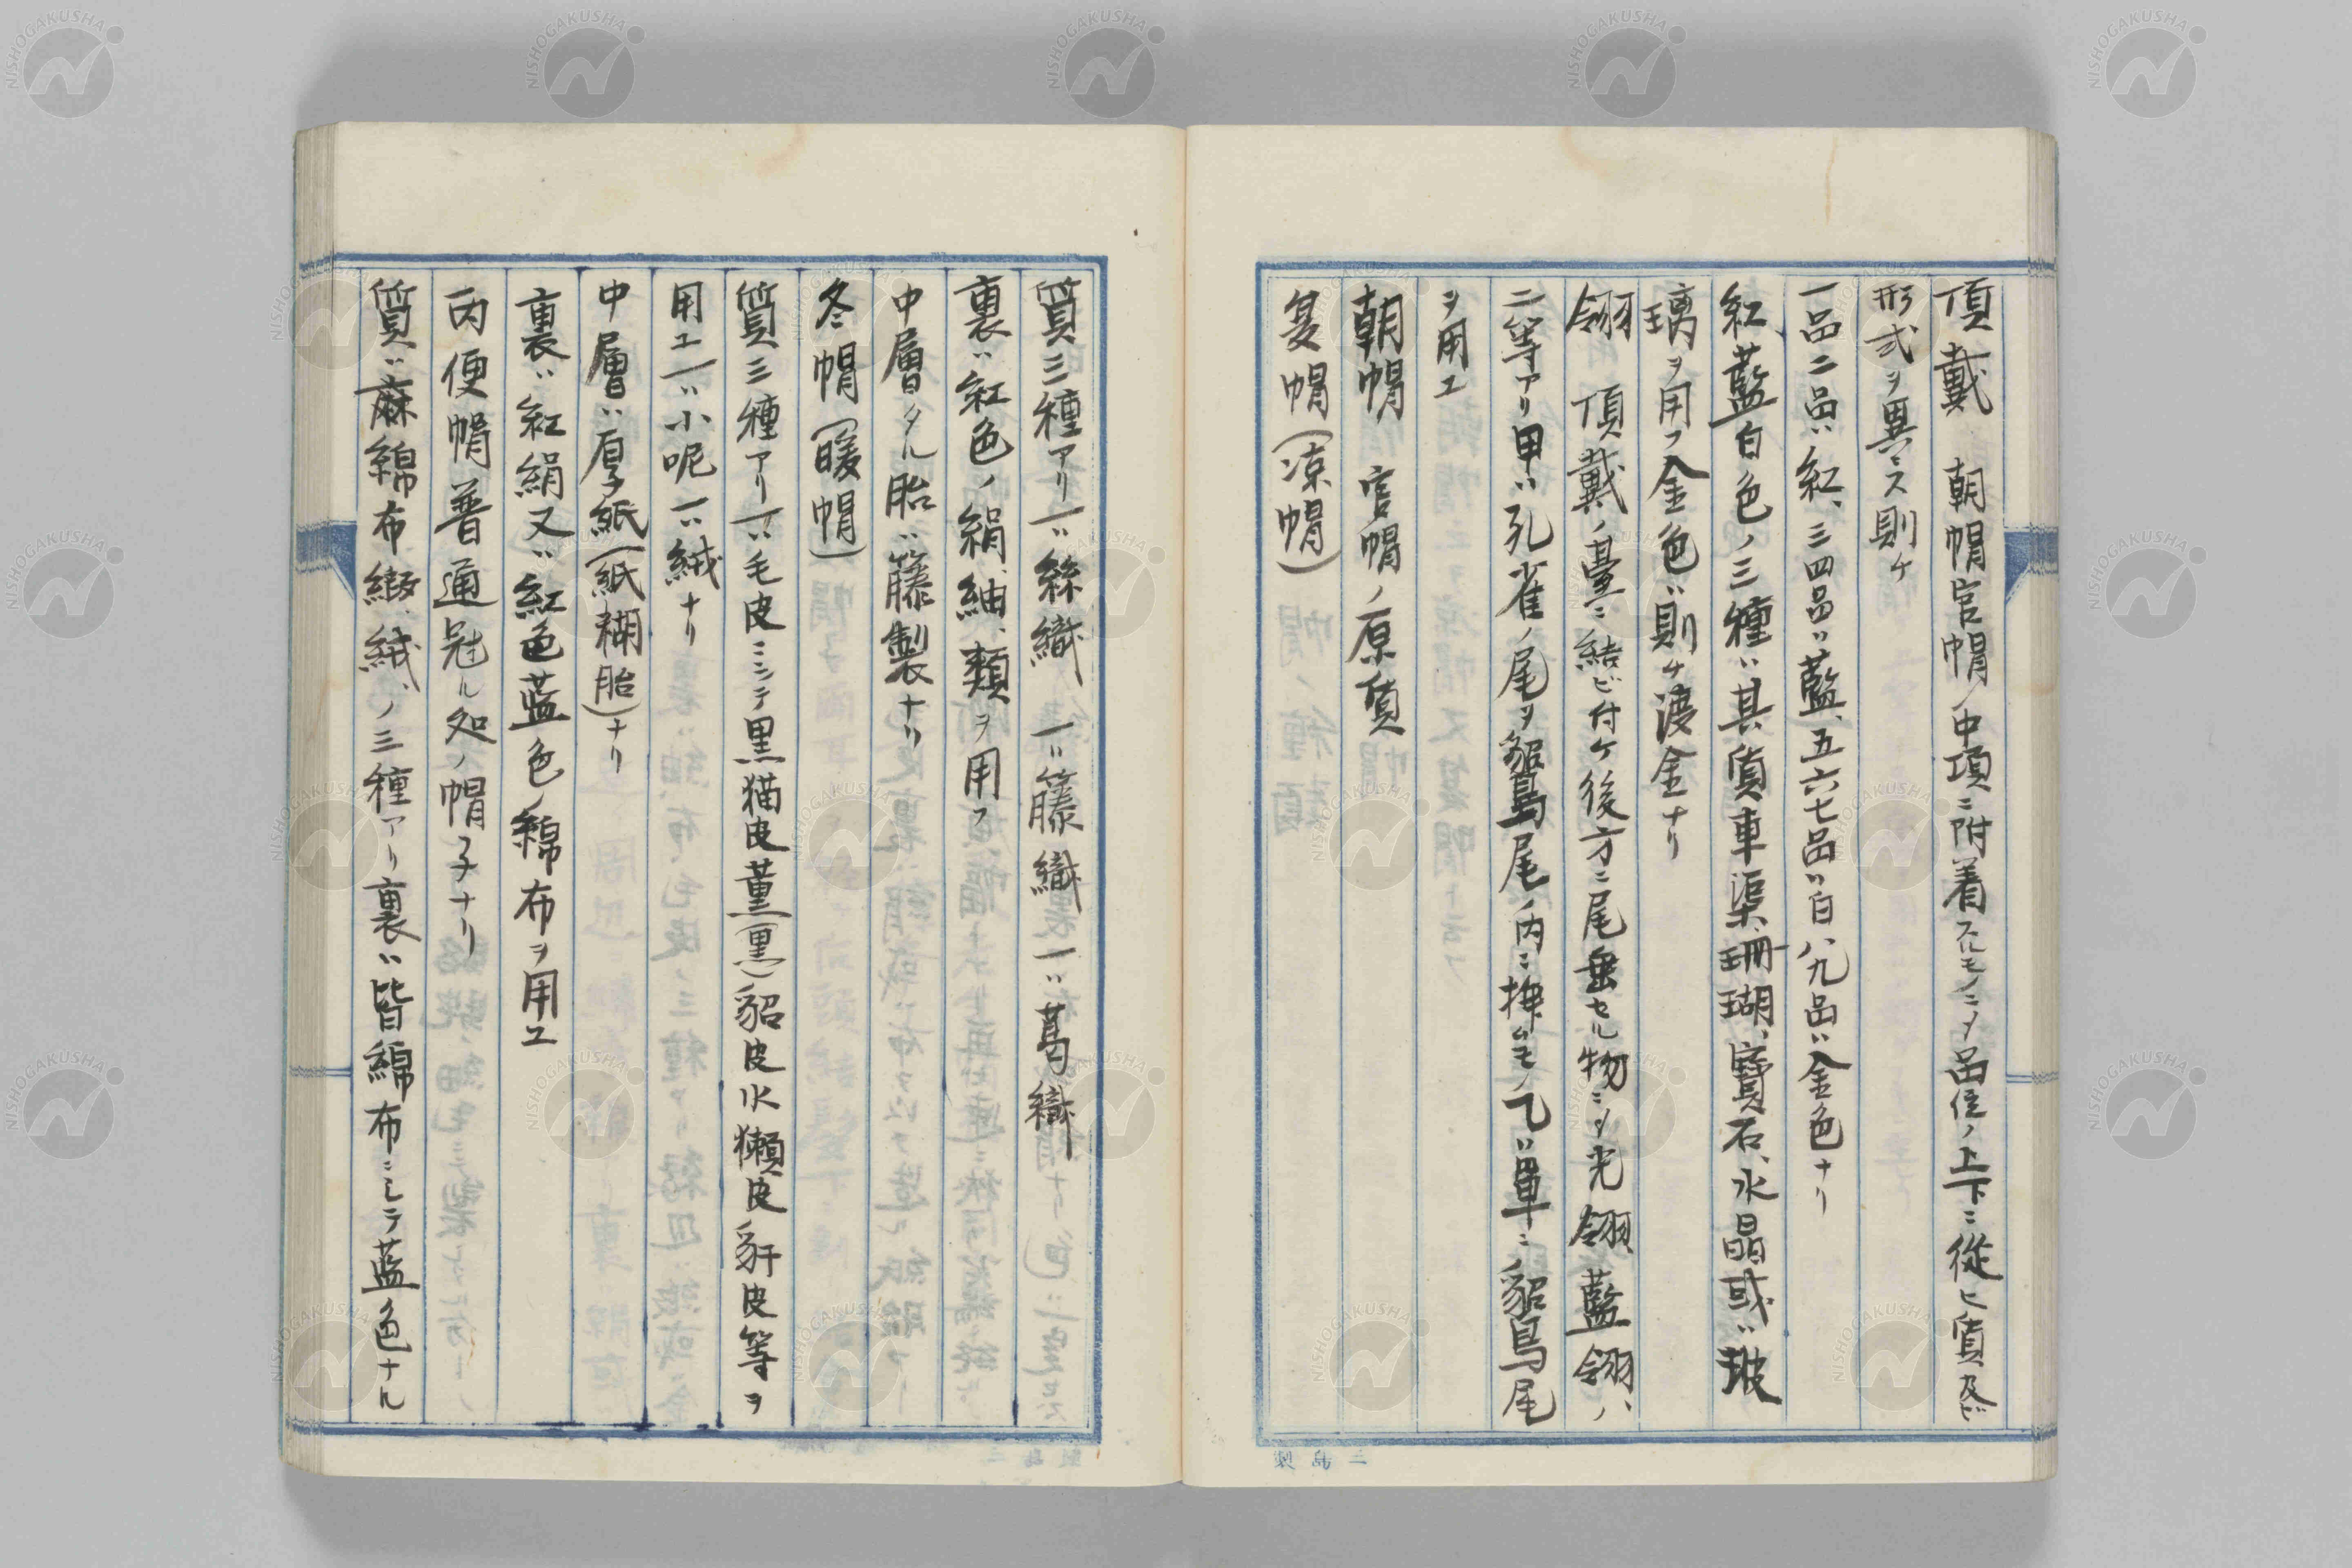 頂戴　朝帽官帽ノ中項ニ附着スルモノニメ品位ノ上下ニ從ヒ質及ビ
形式ヲ異ニス則ケ
一品二品ハ紅、三四品ハ藍、五六七品ハ白、八九品ハ金色ナリ
紅、藍白色ノ三種ハ其質車渠、珊瑚、寶石、水晶或ハ玻
璃ヲ用フ金色ハ則ケ渡金ナリ
翎　頂戴ノ臺ニ結ビ付ケ後方ニ尾垂セル物ニメ光翎藍翎ハ
二等アリ甲ハ孔雀ノ尾ヲ貂鳥尾ノ内ニ挿ムモノ乙ハ單ニ貂鳥尾
ヲ用エ
朝帽　官帽ノ原質
夏帽（凉帽）
質三種アリ一ハ絲織　一ハ籐織　一ハ葛織
裏ハ紅色ノ絹、紬、類ヲ用フ
中層タル胎ハ籐製ナリ
冬帽（暖帽）
質三種アリ一ハ毛皮ニシテ黒猫皮薫（黒）貂皮水獺皮豻皮等ヲ
用エ一ハ小呢一ハ絨ナリ
中層ハ厚紙（紙糊胎）ナリ
裏ハ紅絹又ハ紅色藍色ノ綿布ヲ用エ
丙便帽普通冠ル処ノ帽子ナリ
質ハ麻綿布緞、絨、ノ三種アリ裏ハ皆綿布ニシテ藍色ナル
二島製
NISHOGAKUSHA